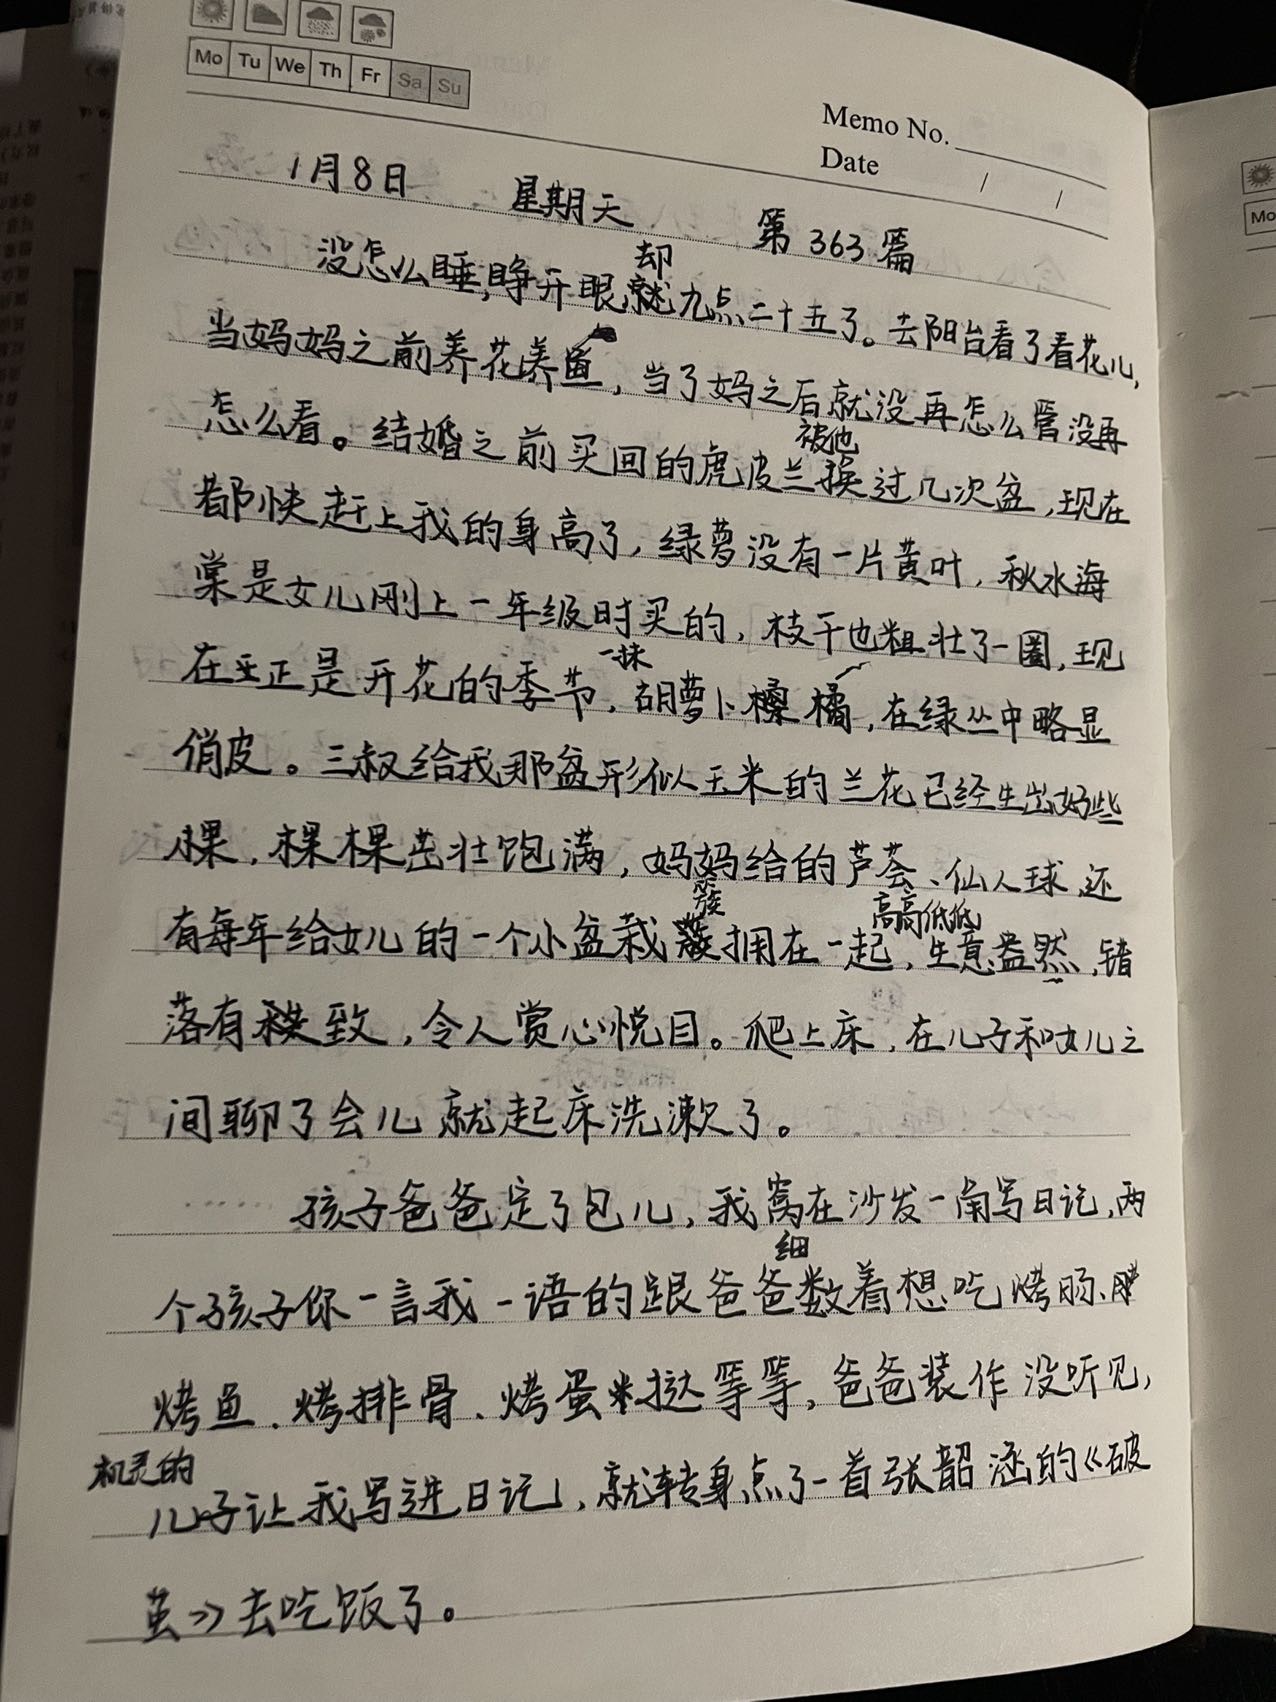 Mo Tu We Th Fr Sa Su
Memo No.
Date / /
1月8日 星期天 第363篇
没怎么睡,睁开眼却就九点二十五了。去阳台看了看花儿,
当妈妈之前养花养鱼,当了妈之后就没再怎么管没再
怎么看。结婚之前买回的虎皮兰被他换过几次盆,现在
都快赶上我的身高了,绿萝没有一片黄叶,秋水海
棠是女儿刚上一年级时买的,枝干也粗壮了一圈,现
在正是开花的季节,一抹胡萝卜橘,在绿丛中略显
俏皮。三叔给我那盆形似玉米的兰花已经生出好些
棵,棵棵茁壮饱满,妈妈给的芦荟、仙人球,还
有每年给女儿的一个小盆栽簇拥在一起,高高低低生意盎然,错
落有致,令人赏心悦目。爬上床,在儿子和女儿之
间聊了会儿就起床洗漱了。
孩子爸爸定了包儿,我窝在沙发一角写日记,两
个孩子你一言我一语的跟爸爸细数着想吃烤肠、
烤鱼、烤排骨、烤蛋挞等等,爸爸装作没听见,
机灵的儿子让我写进日记,就转身点了一首张韶涵的《破
茧》去吃饭了。
Mo